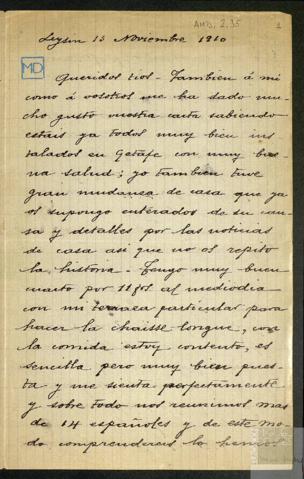 AMD, 2, 35
1
Leysin 13 Noviembre 1910
MD
Queridos tios - Tambien á mi
como á vosotros me ha dado mu-
cho gusto vuestra carta sabiendo
estais ya todos muy bien ins
talados en Getafe con muy bue-
na salud; yo tambien tuve
gran mudanza de casa que ya
os supongo enterados de su cau-
sa y detalles por las noticias
de casa asi que no os repito
la historia - Tengo muy buen
cuarto por 11 fos. al mediodia
con mi terraza particular para
hacer la chaisse longue, con
la comida estoy contento, es
sencilla pero muy bien pues-
ta y me sienta perfectamente
y sobre todo nos reunimos mas
de 14 españoles y de este mo-
do comprendereis lo hemos